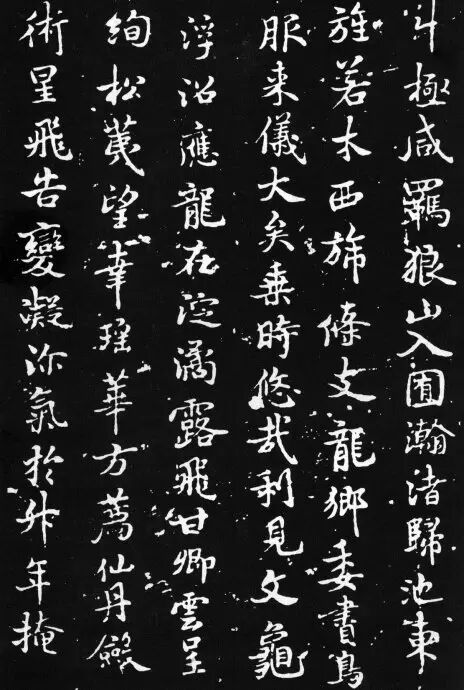 斗極咸羈狼山入囿瀚渚歸池東
旌若木西旆條支龍鄉委書鳥
服来儀大矣乗時悠哉利見文龜
浮沼應龍在淀潏露飛甘卿雲呈
絢松荑望幸瑶華方薦仙丹斂
術星飛告變凝沴氣於升年掩